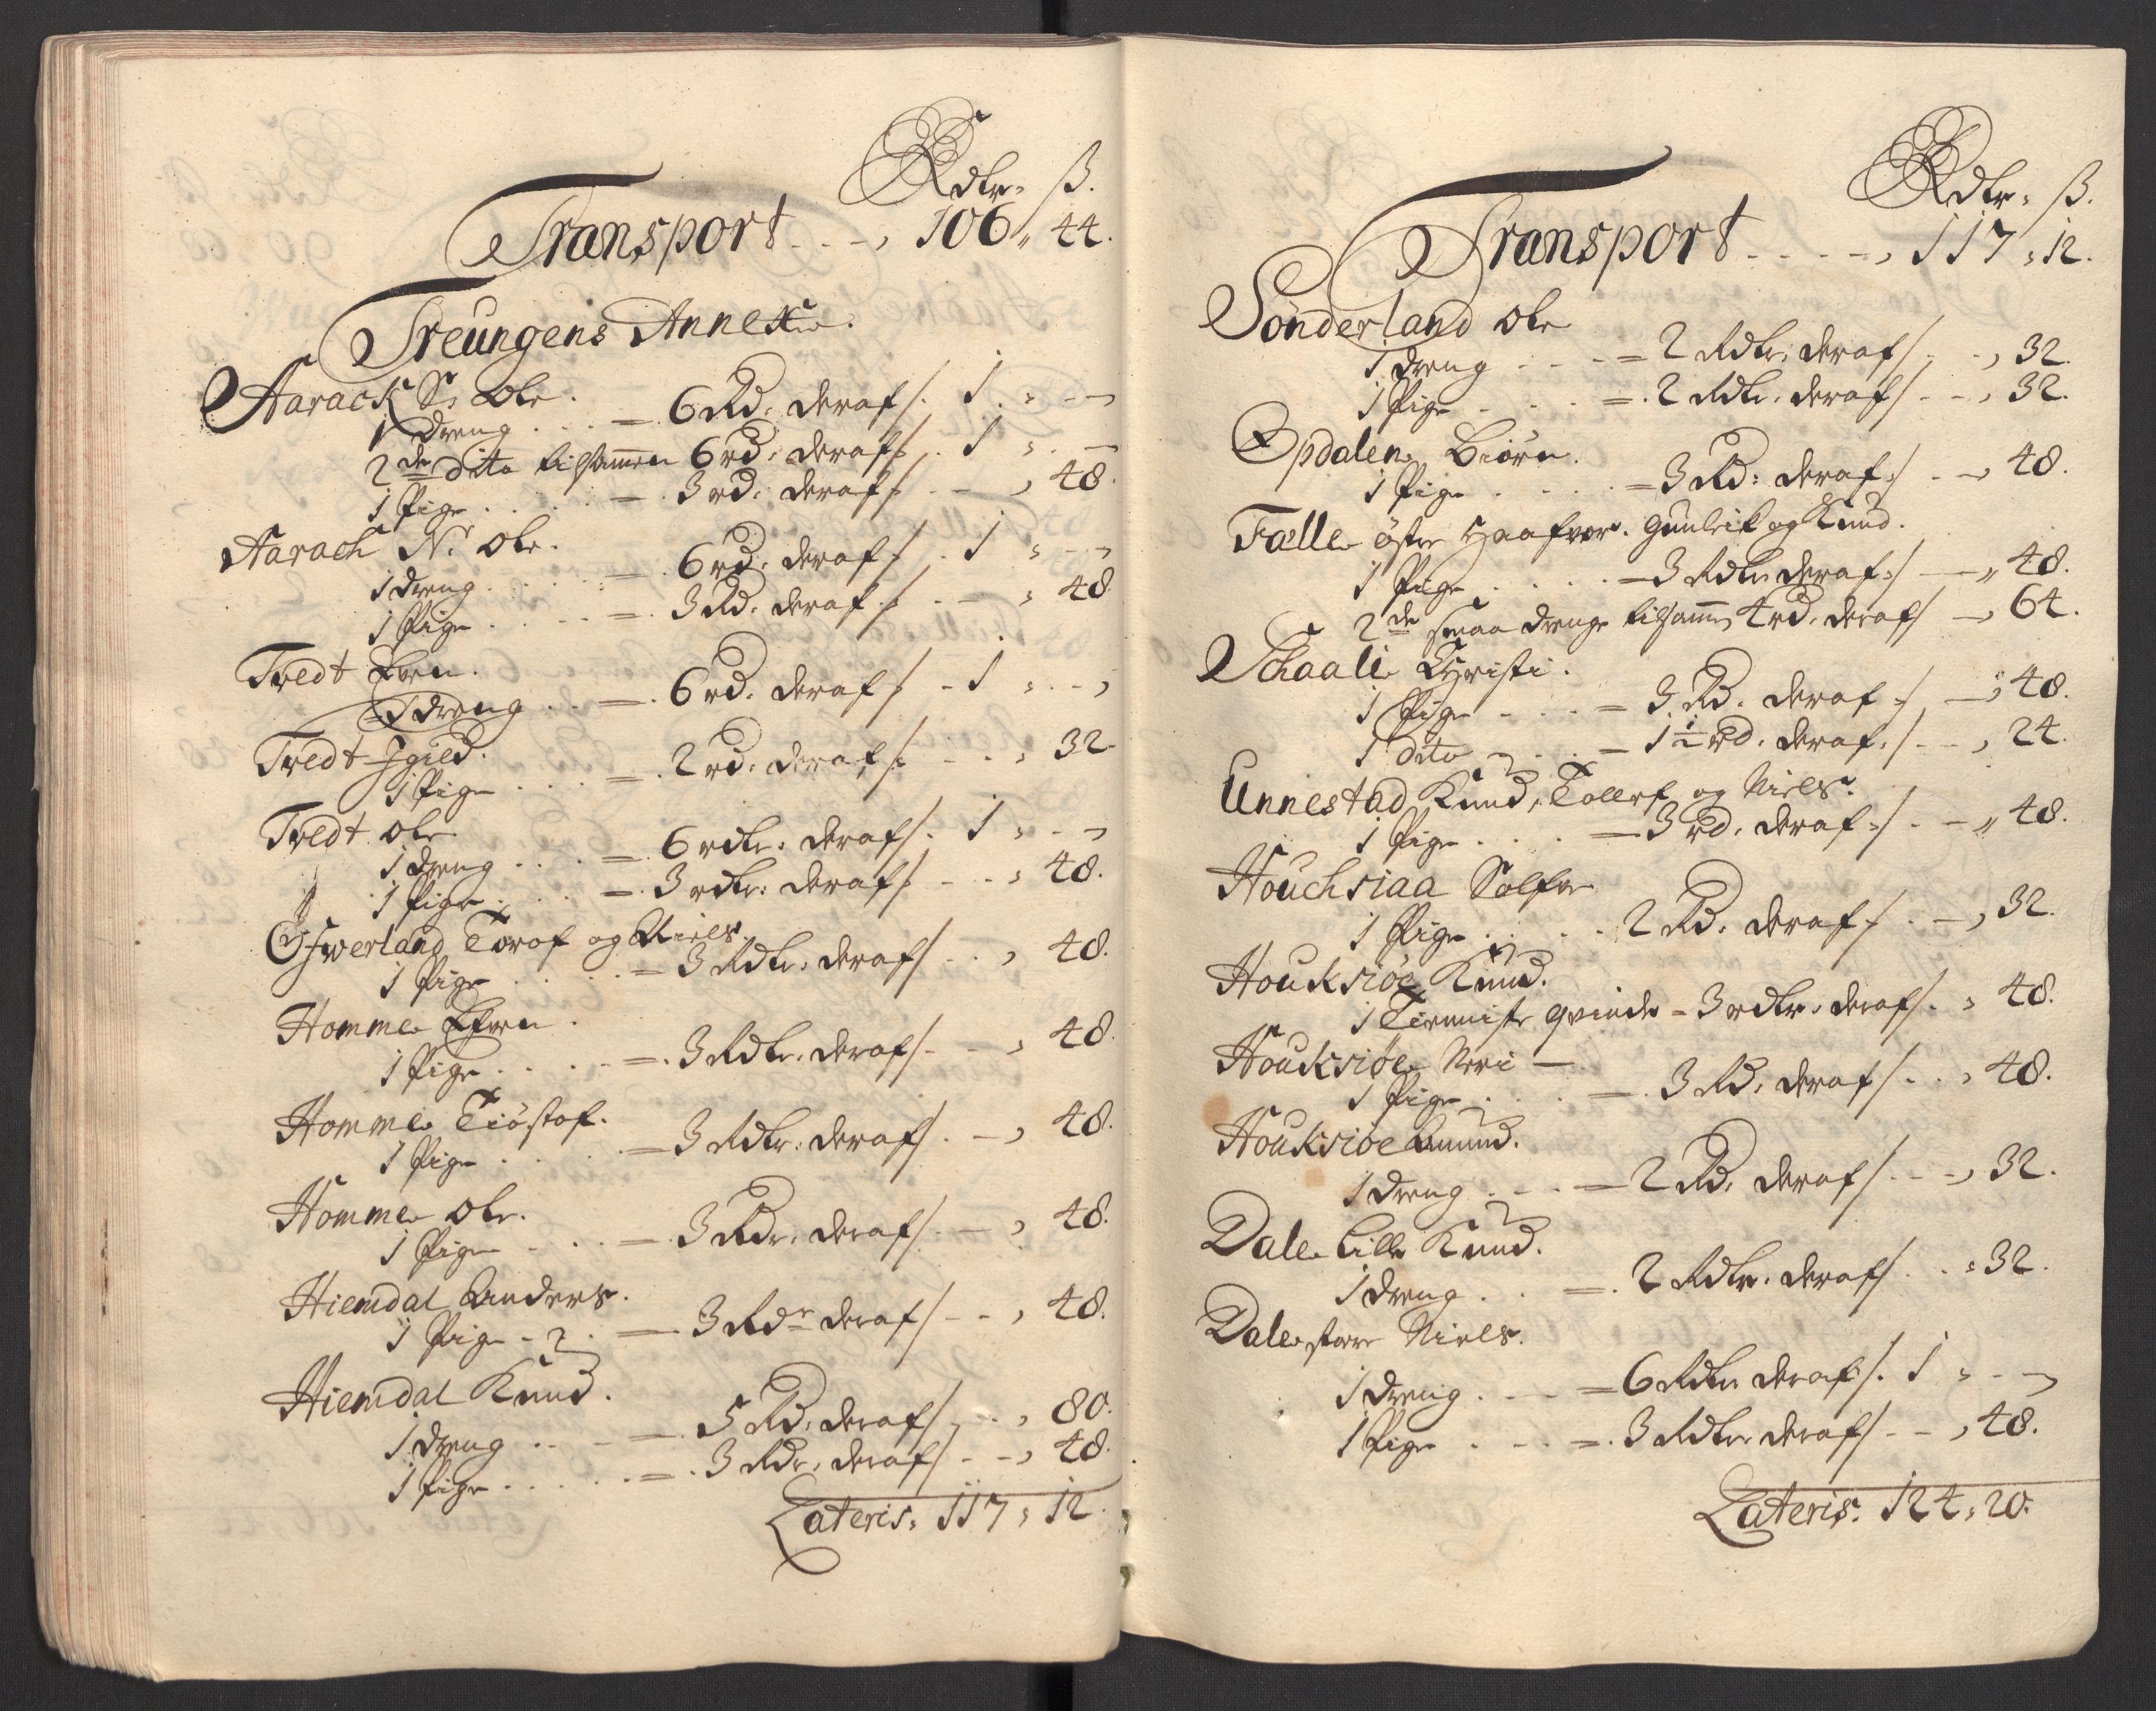 Rdlr. ß.
Transport - - -, 106 „ 44.
Treungens Annexe.
Aarack S: Ole.
1 dreng . . . = 6 Rd. deraf /. 1 „ - -
2de dito tilsammen 6 rd. deraf /. 1 „ -
1 Pige . . . . = 3 rd. deraf /. - - , 48.
Aarach N. Ole.
1 dreng . . . . = 6 rd. deraf /. 1 „ - -
1 Pige . . . . = 3 Rd. deraf /. - - „ 48
Tredt Even.
1 dreng . . = 6 rd. deraf /. - 1 „ - -
Tredt Jgield.
1 Pige . . . = 2 rd. deraf /. . . „ 32
Tredt Ole
1 dreng . . . = 6 rdlr. deraf /. 1 „ - -
1 Pige . . . = 3 rdlr. deraf /. - - „ 48.
Ofwerland Toraf og Niels.
1 Pige . . . . = 3 Rdlr. deraf /. . , 48.
Homme Efven.
1 Pige . . . . = 3 Rdlr. deraf /. - - „ 48.
Homme Tiöstof.
1 Pige . . . . = 3 Rdlr. deraf /. - , 48.
Homme Ole.
1 Pige - . . = 3 Rdr. deraf /. - , 48.
Hiemdal Anders.
1 Pige - . = 3 Rdr deraf / - - , 48.
Hiemdal Knud.
1 dreng . . - = 5 Rd. deraf / - . , 80.
1 Pige . . . . = 3 Rdr. deraf / - - , 48.
Lateris. 117 „ 12.
Rdlr. ß.
Transport - - - -, 117 „ 12.
Sönderland Ole
1 dreng - - - = 2 Rdlr. deraf / - - , 32.
1 Pige - . . = 2 Rdlr. deraf / - - , 32.
Opdalen Biörn.
1 Pige . . . = 3 Rd: deraf / - - , 48.
Fælle öster Haafvor. Gunleik og Knud.
1 Pige . . . . = 3 Rdlr deraf / - - „ 48.
2de smaa drenge tilsamm 4 rd. deraf / - , 64.
Schaali Kristi.
1 Pige - - . = 3 Rd. deraf / - „ 48.
1 dito . . . = 1 ½ rd. deraf / - - , 24.
Unnestad Knud, Tollef og Niels.
1 Pige . . . = 3 rd. deraf / - - „ 48.
Houchsiaa Solfve
1 Pige . . . . 2 Rd. deraf / . - , 32.
Houksiöe Knud.
1 Tienniste qvinde = 3 rdlr. deraf /. „ 48.
Houksiöe Neri -
1 Pige . . . = 3 Rd. deraf /. . , 48.
Houksiöe Amund.
1 dreng - . . = 2 Rd. deraf / - - , 32.
Dale lille Knud.
1 dreng . . = 2 Rdlr. deraf / . . „ 32.
Dale store Niels.
1 dreng . - - = 6 Rdlr deraf /. 1 „ - -
1 Pige . - . = 3 Rdlr deraf / - - , 48.
Lateris. 124 „ 20.